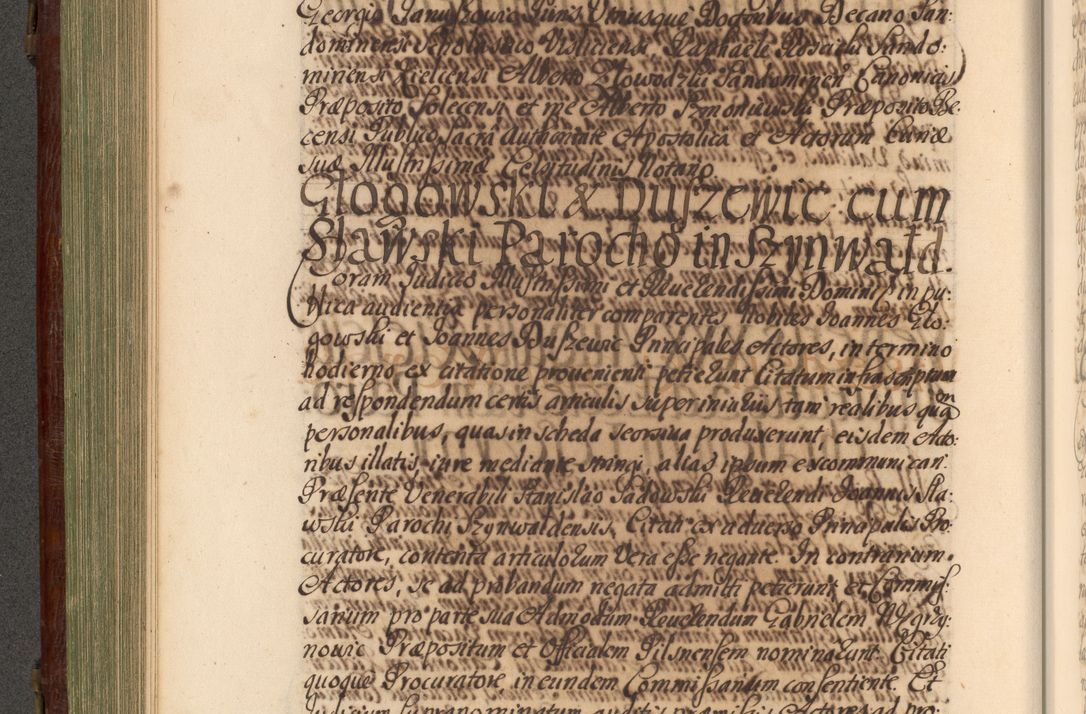 Georgio Januszowic Juris Utriusque Doctoribus Decano San:
dominensi Scholastico Visliciensi, Raphaele Roscielsi Sando:
miriensi Kielcensi Alberto Nowodzki Sandomiren Canonicis
Præposito Solecensi et me Alberto Præposito Be:
censi Publico Sacra Authoritate Apostolica et Actorum Curiæ
suæ Illustrissimæ Celsitudinis Notario.
Glogowski & Duszewic cum
Sławski Parocho in Szynwałd.
Coram Judicio Illustrissimi et Reverendissimi Domini in pu:
blica audientia personaliter comparentes Nobiles Joannes Glo:
gowski et Joannes Duszewic Principales Actores, in termino
hodierno ex citatione provenienti petierunt Citatum infrascriptum
ad respondendum certis articulis super iniuriis tam realibus quam
personalibus, quas in scheda seorsiva produxerunt, eisdem Acto:
ribus illatis, iure mediante stringi, alias ipsum excommunicari.
Præsente Venerabili Stanislao Sadowski Reverendi Joannis Sła:
wski Parochi Szynwaldensis, Citati ex adverso Principalis Pro:
curatore, contenta articulorum vera esse negante. In contrarium
Actores, se ad probandum negata admitti petierunt et Commis:
sarium pro parte sua Admodum Reverendum Gabrielem Wÿgrzy:
nowic Præpositum et Officialem Pilsnensem nominarunt. Citati
quoque Procuratore, in eundem Commissarium consentiente. Et
Judicium supranominatum auditis præmissis Actores ad pro: